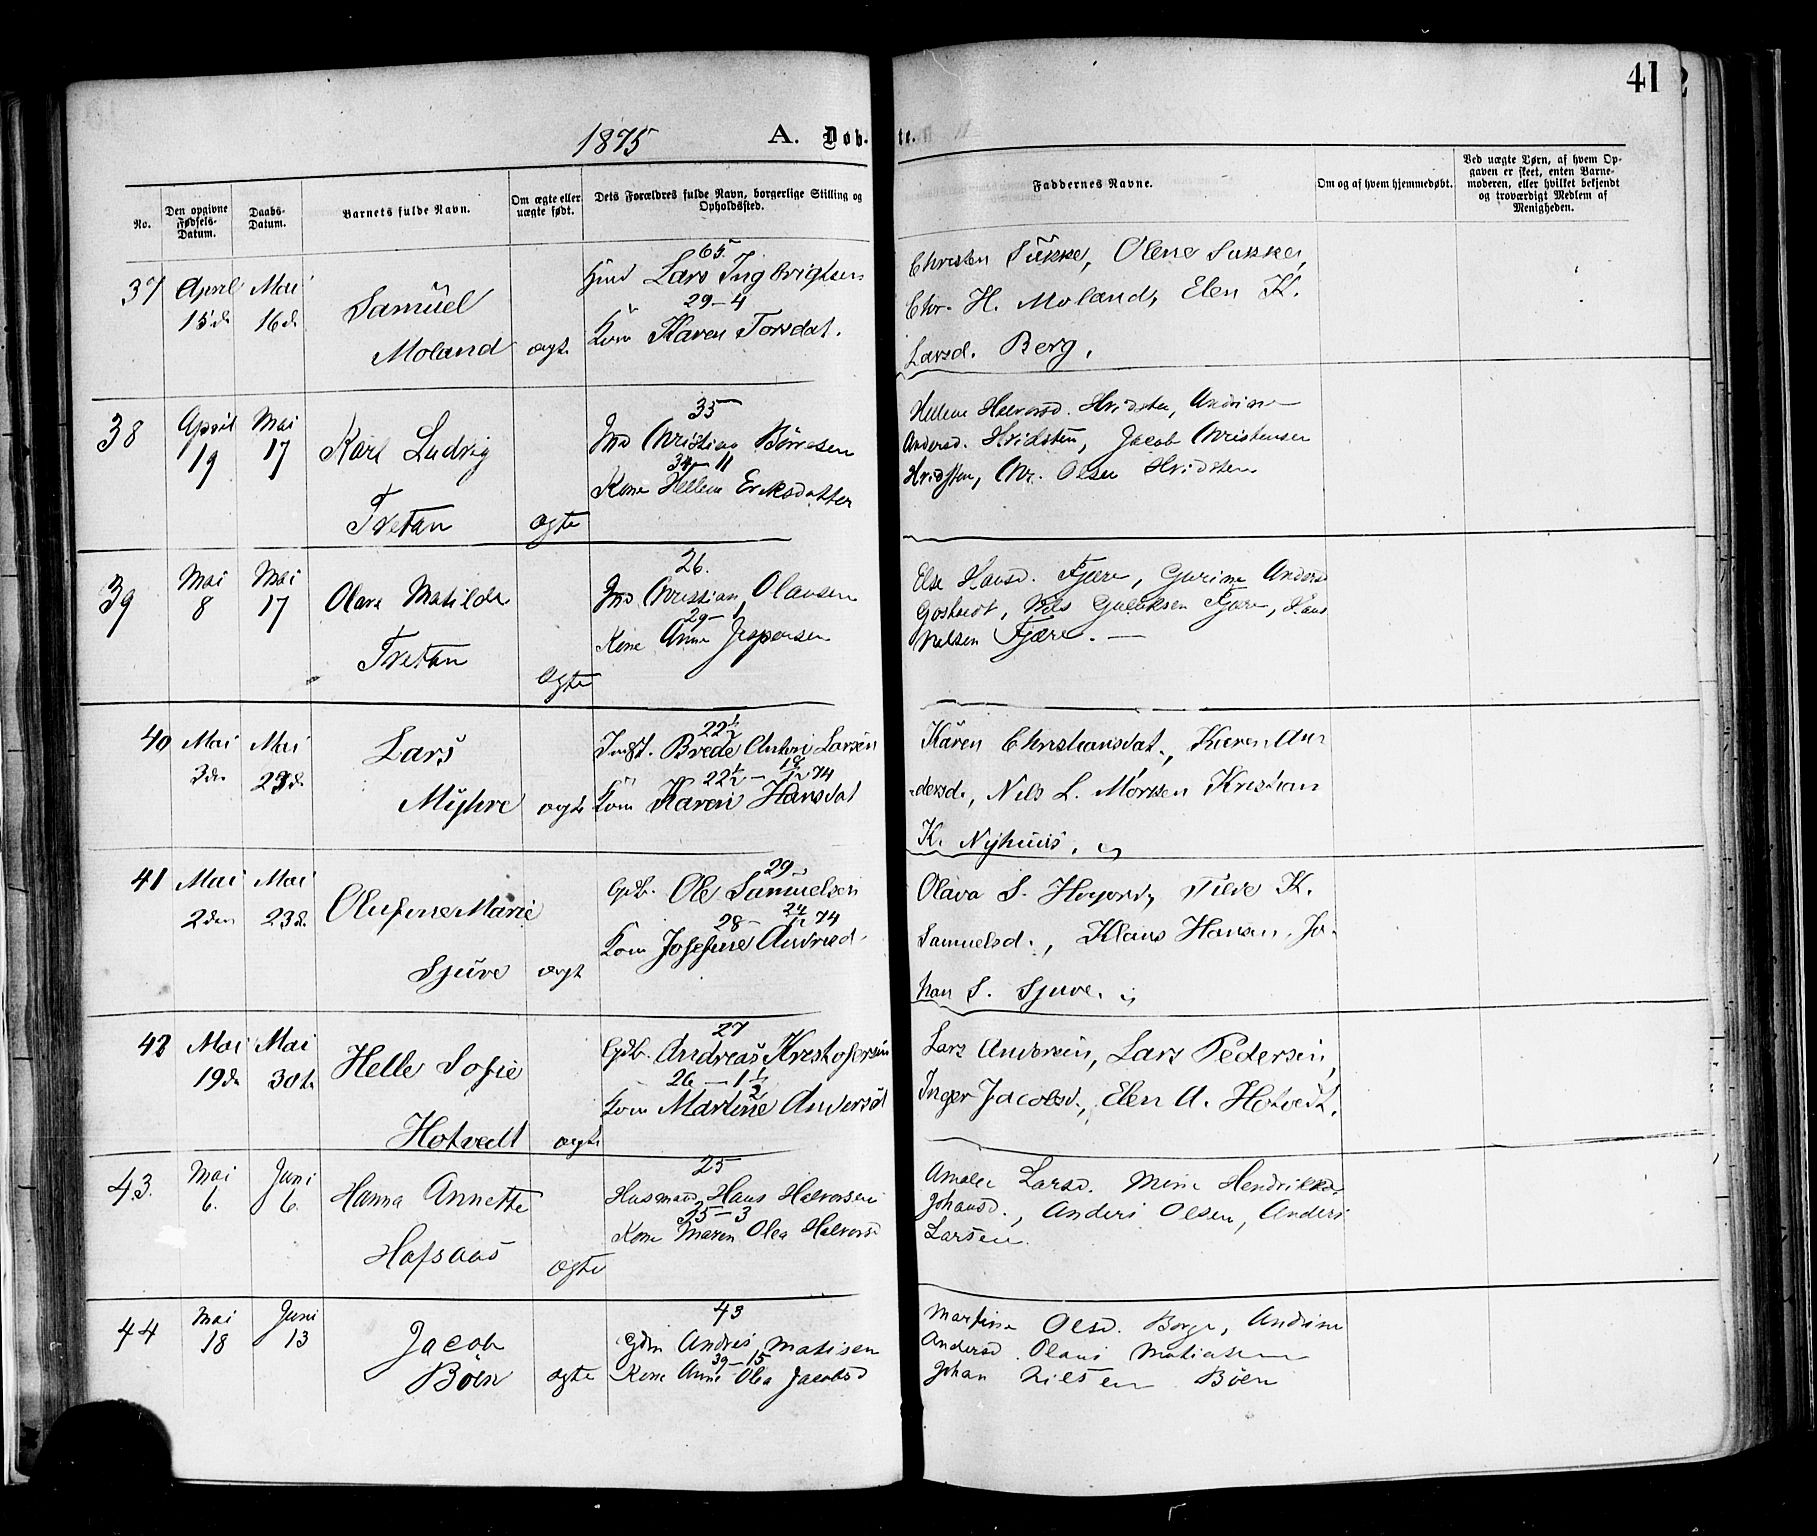 41
1875 A. Døb- te.
No.
Den opgivne Fødsels-Datum.
Daabs-Datum.
Barnets fulde Navn.
Om ægte eller uægte født.
Dets Forældres fulde Navn, borgerlige Stilling og Opholdssted.
Faddernes Navne.
Om og af hvem hjemmedøbt.
Ved uægte Børn, af hvem Opgaven er skeet, enten Barnemoderen, eller hvilket bekjendt og troværdigt Medlem af Menigheden.
37 April 15de Mai 16de
Samuel
Moland ægte
65.
Lars Ingbrigtsen
29-4
Kone Karen Torsdat.
Christen Sukke, Olene Sukke,
Chr. H. Moland, Elen K.
Larsd. Berg.
38 April 19 Mai 17
Karl Ludvig
Tvetan ægte
35
Ind Christian Børresen
34-11
Kone Hellene Eriksdatter
Hellene Halvorsd. Hvidsten, Andrine
Andersd. Hvidsten, Jacob Christensen
Hvidsten, Chr. Olsen Hvidsten
39 Mai 8 Mai 17
Olava Matilde
Tvetan
ægte
26.
Ind Christian Olausen
29-1
Kone Anne Jespersen
Else Hansd. Fjære, Gurine Andersd
Nils Gulliksen Fjære, Hans
Nielsen Fjære.
40 Mai 3den Mai 23de
Lars
Myhre ægte
22½
Indst. Brede Anton Larsen
22½ - 18/12 74
Kone Karen Hansdat
Karen Christiansdat., Karen An-
dersd., Nils L. Kristian
K. Nyhuus.
41 Mai 2den Mai 23de
Olufine Marie
Sjuve ægt
29
Gdb. Ole Samuelsen
28 - 24/12 74
Kone Josefine Andresd
Olava S. K.
Samuelsd., Klaus Hansen, Jo-
han S. Sjuve.
42 Mai 19de Mai 30te
Helle Sofie
Hotvedt ægte
27
Gdb. Andreas Kristofersen
26 - 1½
Kone Martine Andersd
Lars Andersen, Lars Pedersen,
Inger Jacobsd., Elen A. Hotvedt.
43. Mai 6. Juni 6.
Hanna Annette
Hafsaas
ægte
25
Husmand Hans Halvorsen
25-3
Kone Maren Olea Halvorsd
Amalie Larsd. Mine Hendrikke
Johansd., Anders Olsen, Anders
Larsen.
44 Mai 18 Juni 13
Jacob
Böen ægte
43
Gdm Andres Matisen
39-15
Kone Anne Olea Jacobsd
Martine Olsd. Borge, Andrine
Andersd. Olaus Matiasen
Johan Nilsen Böen